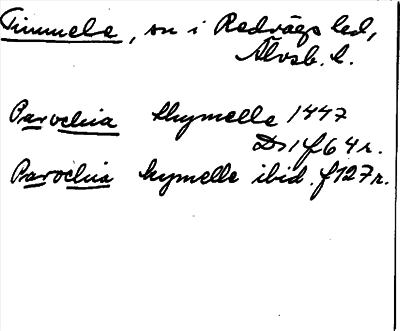 Timmele, sn i Redvägs hd,
Älvsb. l.
Parochia thymelle 1447
D 1 f 64 r.
Parochia hymelle ibid. f 127 r.